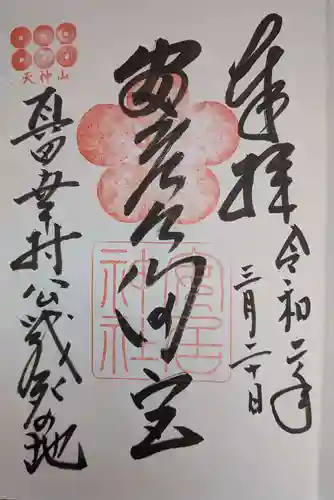 奉拝
令和二年
三月二十日
安居
神社
天神山
真田幸村公戦死の地